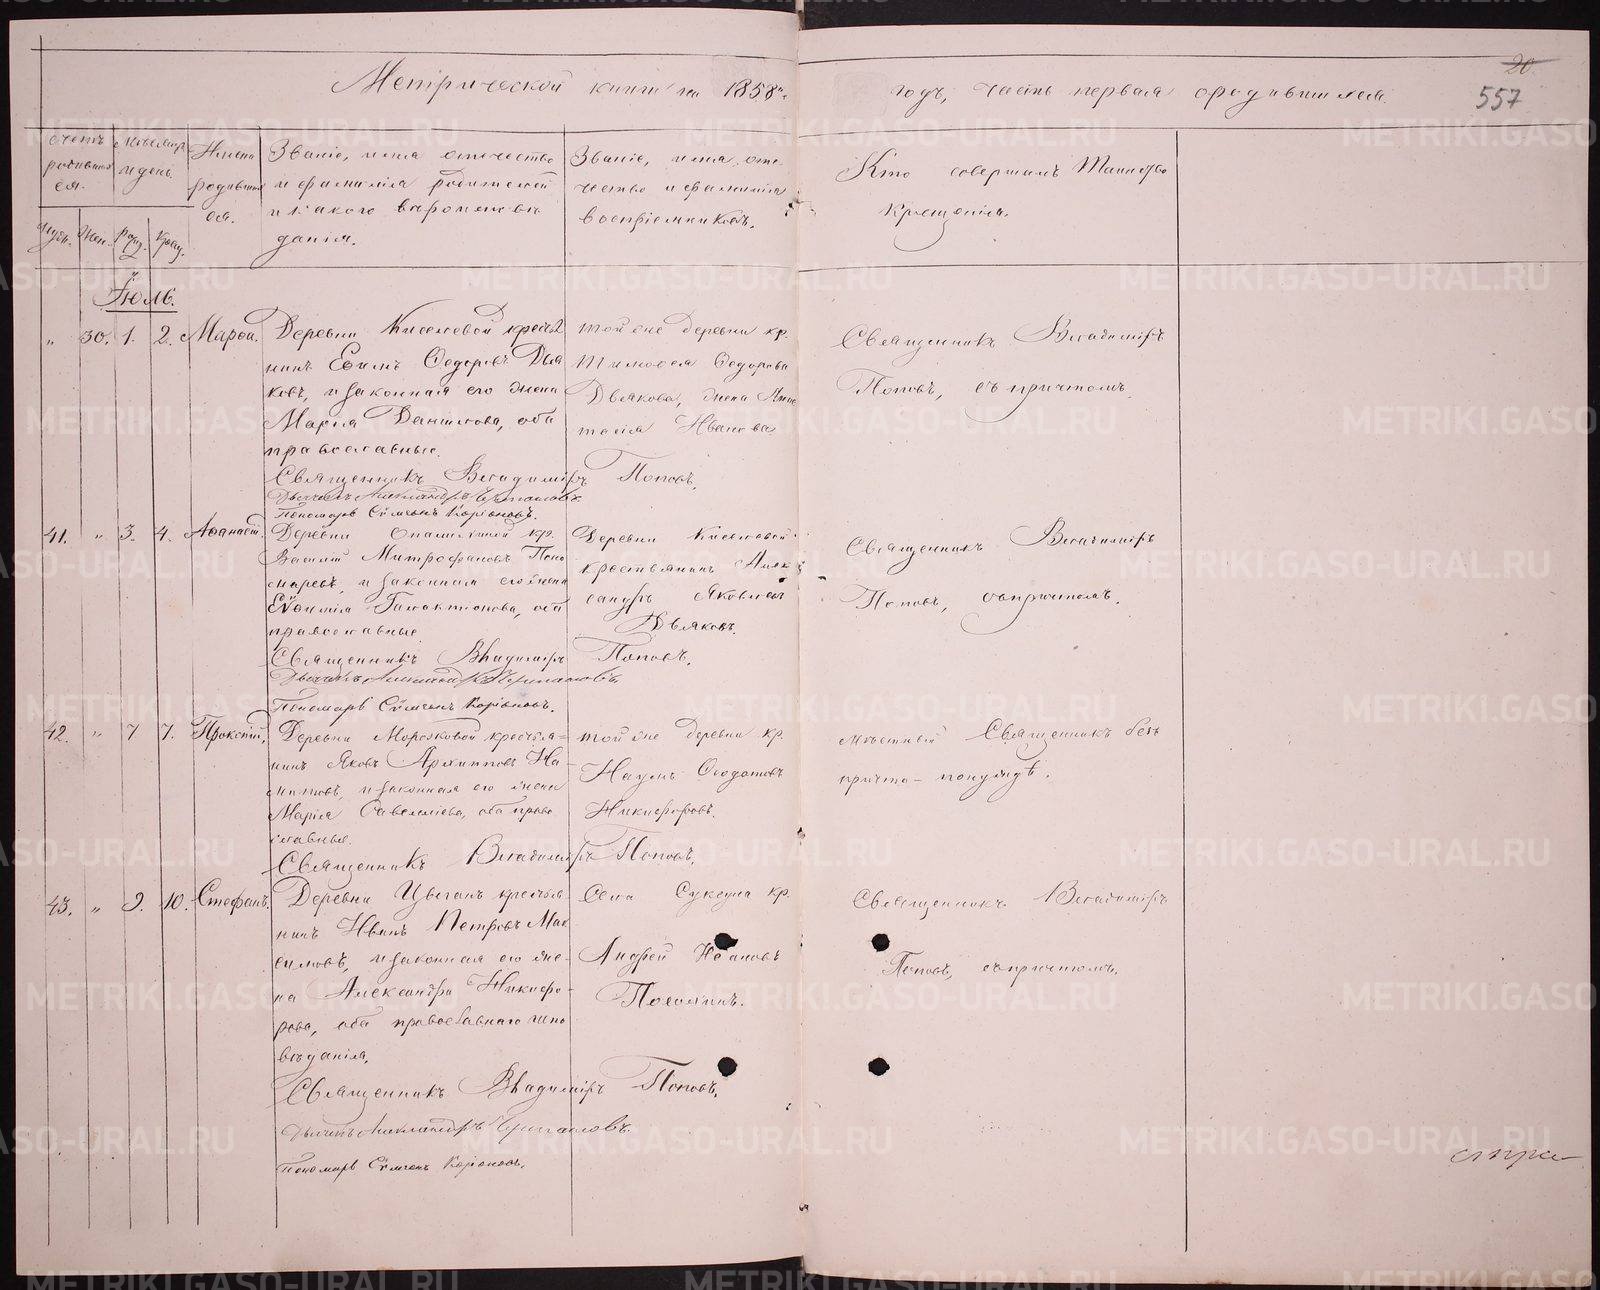 Метрической книги на 1858й
годъ, часть первая о родившихся.
20
557
Счетъ родившихся.
Мѣсяцъ и день.
Имена родившихся.
Званіе, имя отечество
и фамилія родителей
и какого вѣроисповѣ
данія.
Званіе, имя, оте-
чество и фамилія
воспріемниковъ.
Кто совершалъ Таинство
Крещенія.
Муж. Жен. рожд. Крещ.
Іюль.
" 30. 1. 2. Марѳа.
Деревни Киселевой крестья
нинъ Евѳимъ Ѳедоровъ Дья
ковъ, и законная его жена
Марія Данилова, оба
православные.
Священникъ Владиміръ Поповъ.
Дьячекъ Александръ
Пономарь Сѵмеонъ
той же деревни кр.
Тимоѳея Ѳедорова
Дьякова, жена Анас
тасія Иванова
Священникъ Владиміръ
Поповъ, съ причтомъ.
41. " 3. 4. Аѳанасій.
Деревни кр.
Василій Митрофановъ Поно
маревъ, и законная его жена
Евѳимія Галактіонова, оба
православные
Священникъ Владиміръ Поповъ.
Дьячекъ Александръ
Пономарь Сѵмеонъ
Деревни Киселевой
крестьянинъ Алек
сандръ Яковлевъ
Дьяковъ.
Священникъ Владиміръ
Поповъ, съ причтомъ.
42. " 7 7. Прокопій,
Деревни Морозковой крестья-
нинъ Яковъ Архиповъ
и законная его жена
Марія Савельева, оба право
славные.
Священникъ Владиміръ Поповъ.
той же деревни кр.
Наумъ
Никифоровъ.
мѣстный Священникъ безъ
причта - по нуждѣ.
43. " 9. 10. Стефанъ.
Деревни Цыганъ крестья
нинъ Иванъ Петровъ Мак
симовъ, и законная его же-
на Александра Никифо-
рова, оба православнаго испо
вѣданія.
Священникъ Владиміръ Поповъ.
Дьячекъ Александръ
Пономарь Сѵмеонъ
Села Суксуна кр.
Андрей Ивановъ
Священникъ Владиміръ
Поповъ, съ причтомъ.
METRIKI.GASO-URAL.RU